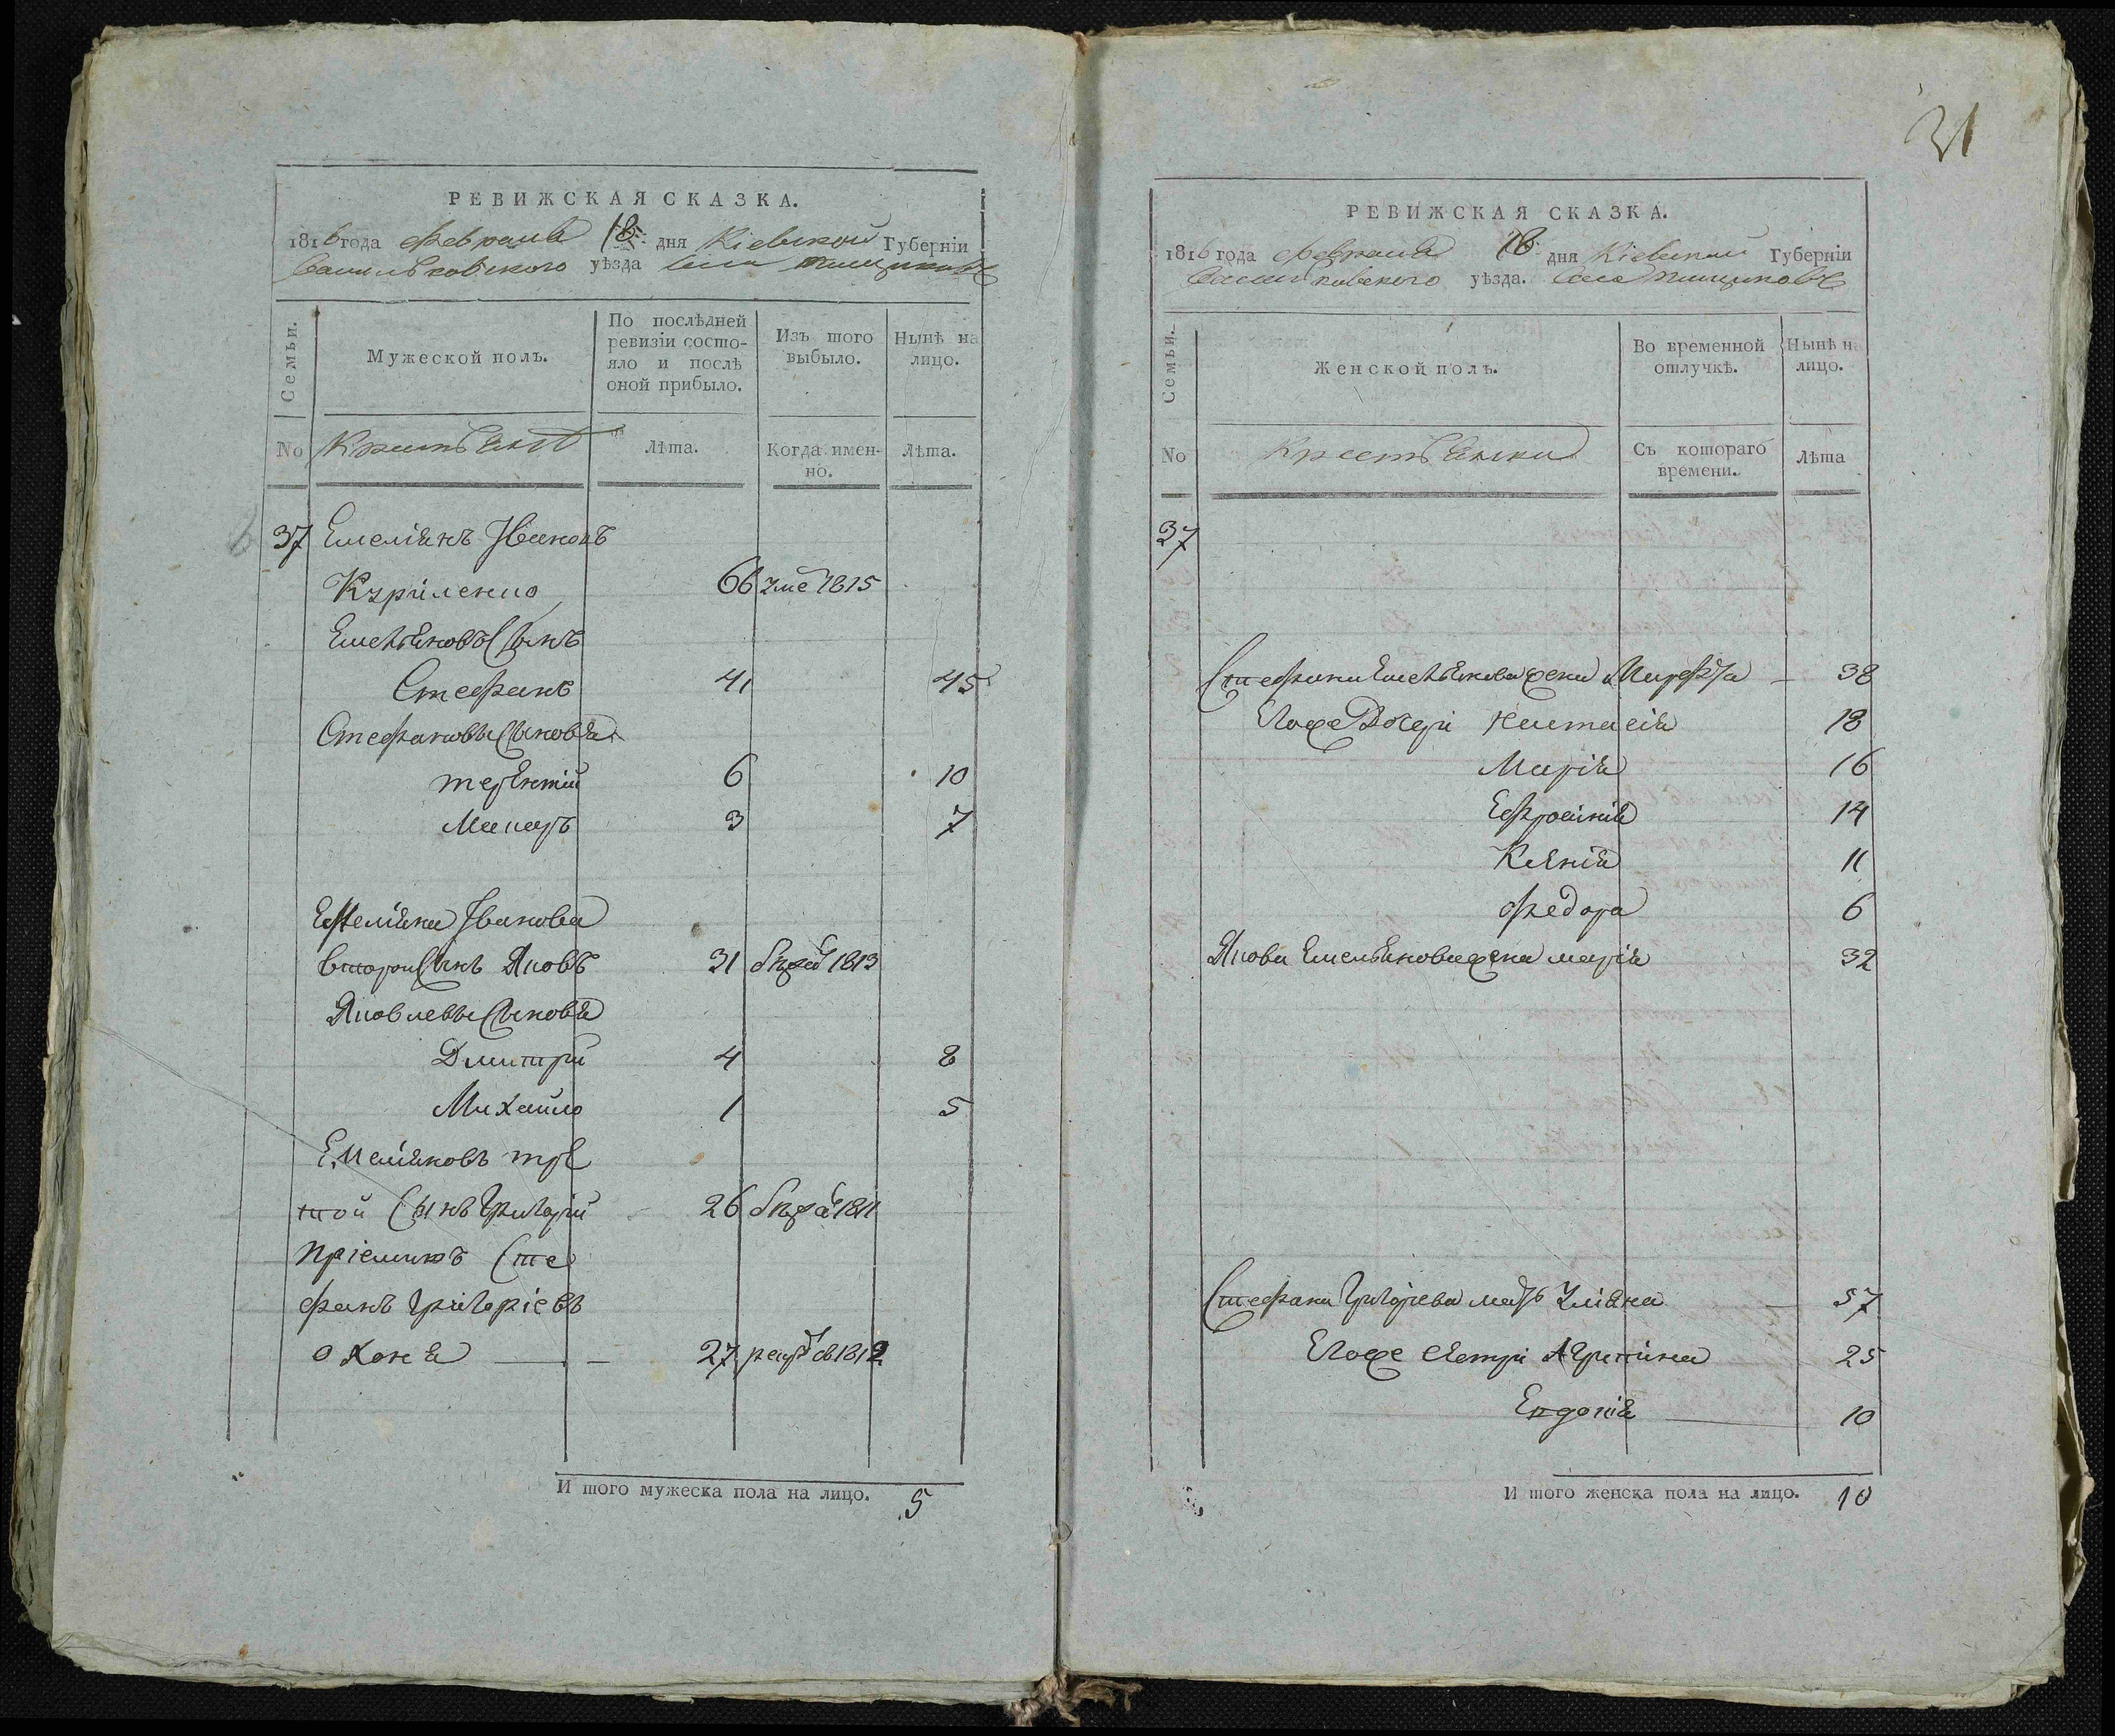 31
РЕВИЖСКАЯ СКАЗКА.
1816 года февраля 18 дня Кіевской Губерніи
Васильковского уѣзда Села Пищиковъ
Семьи.
Мужеской полъ.
По послѣдней ревизіи состояло и послѣ оной прибыло.
Изъ того выбыло.
Нынѣ на лицо.
No
Крестьяне
Лѣта.
Когда именно.
Лѣта.
37 Емеліянъ Ивановъ
Куриленко 66 умє 1815
Емельяновъ Сынъ
Стефанъ 41 45
Стефановы Сыновья
терентій 6 10
Макаръ 3 7
Емеліяна Иванова
второй Сынъ Яковъ 31 1813
Яковлевы Сыновья
Дмитри 4 8
Михайло 1 5
Емеліяновъ тре
той Сынъ Григорій 26 1811
пріемишъ Сте
фанъ Григоріевъ
27 1812
И того мужеска пола на лицо. 5
РЕВИЖСКАЯ СКАЗКА.
1816 года февраля 18 дня Кіевской Губерніи
Васильковского уѣзда. Села Пищиковъ
Семьи.
Женской полъ.
Во временной отлучкѣ.
Нынѣ на лицо.
No
Крестьянки
Съ котораго времени.
Лѣта
37
Стефана Емельянова жена Марфа 38
Егоже Дочери Настасія 18
Марія 16
Ефросинія 14
Ксенія 11
Федора 6
Якова Емельянова жена марія 32
Стефана Григорьева мать Уліяна 57
Егоже сестри Агрипина 25
Евдокія 10
И того женска пола на лицо. 10